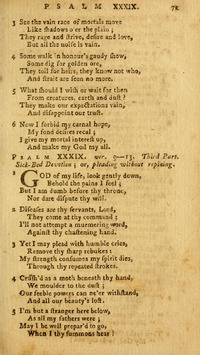 PSALM XXXIX. 78
3 See the vain race of mortals move
Like shadows o'er the plain;
They rage and strive, desire and love,
But all the noise is vain.
4 Some walk in honour's gaudy show,
Some dig for golden ore,
They toil for heirs, they know not who,
And strait are seen no more.
5 What should I wish or wait for then
From creatures, earth and dust?
They make our expectations vain,
And disappoint our trust.
6 Now I forbid my carnal hope,
My fond desires recal;
I give my mortal interest up,
And make my God my all.
PSALM XXXIX. ver. 9—13. Third Part.
Sick-Bed Devotion; or, pleading without repining.
1 GOD of my life, look gently down,
Behold the pains I feel;
But I am dumb before thy throne,
Nor dare dispute thy will.
2 Diseases are thy servants, Lord,
They come at thy command;
I'll not attempt a murmering word,
Against thy chastening hand.
3 Yet I may plead with humble cries,
Remove thy sharp rebukes:
My strength consumes my spirit dies,
Through thy repeated strokes.
4 Crush'd as a moth beneath thy hand,
We moulder to the dust;
Our feeble powers can ne'er withstand,
And all our beauty's lost.
5 I'm but a stranger here below,
As all my fathers were;
May I be well prepar'd to go,
When I thy summons hear!